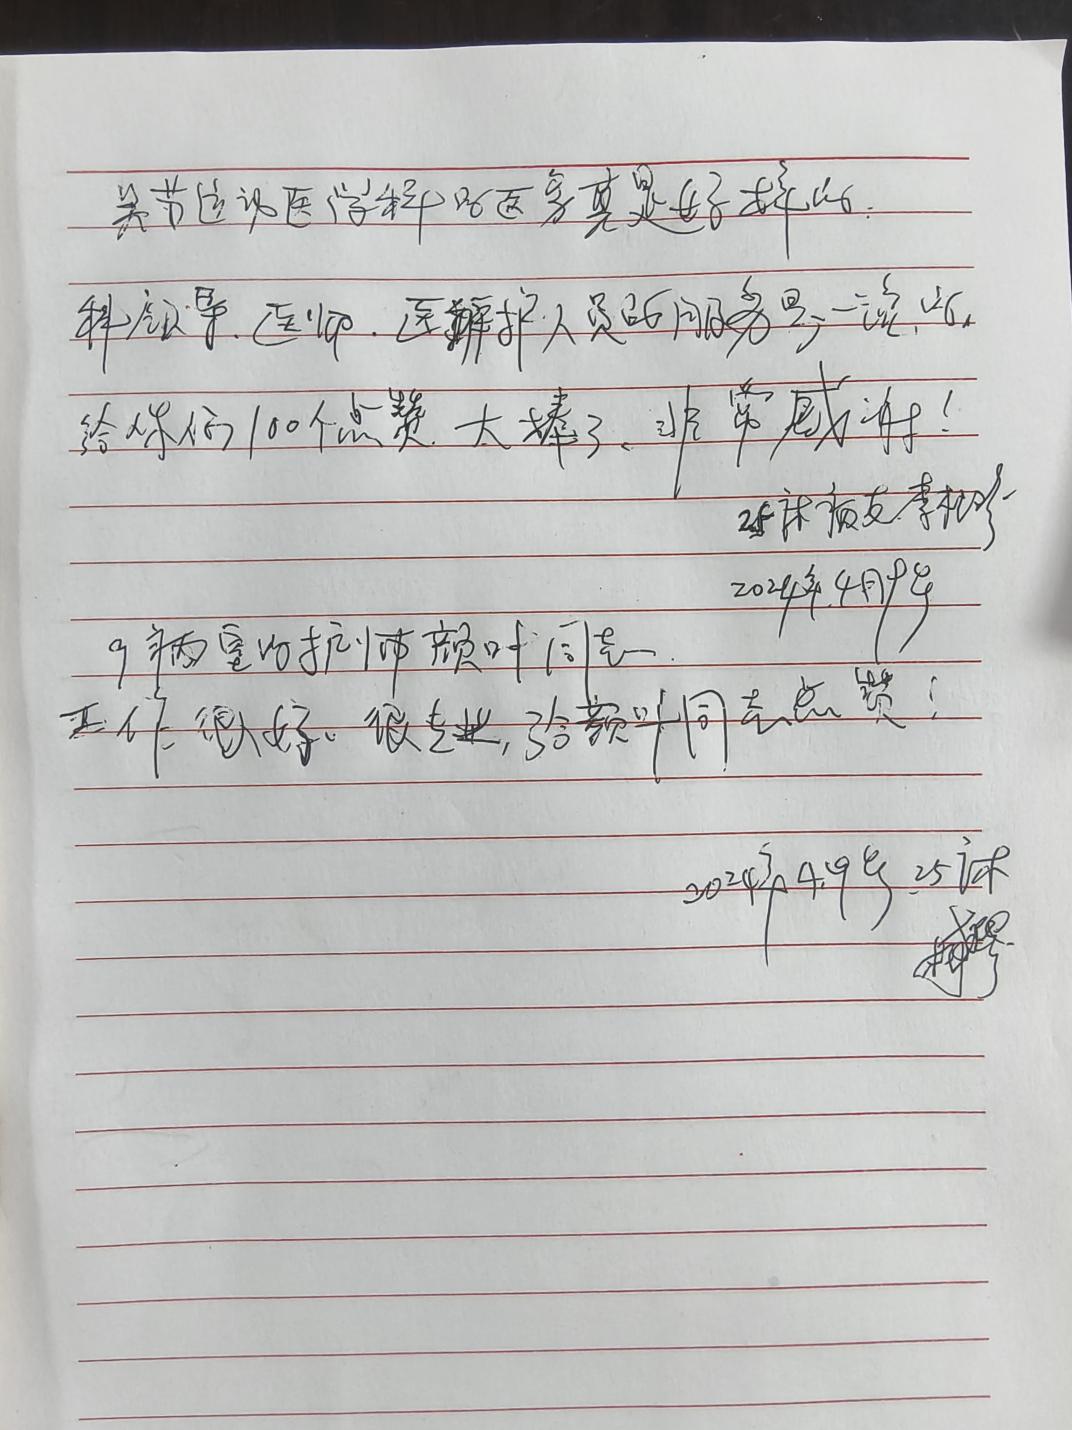 关节运动医学科的医务真是好样的.
科领导.医师.医护人员的服务是一流的.
给你们100个点赞.太棒了、非常感谢！
25床病友.李
2024年.4月9号
9病室的护师颜叶同志.
工作很好。很专业,给颜叶同志点赞！
2024年4.9号.25床